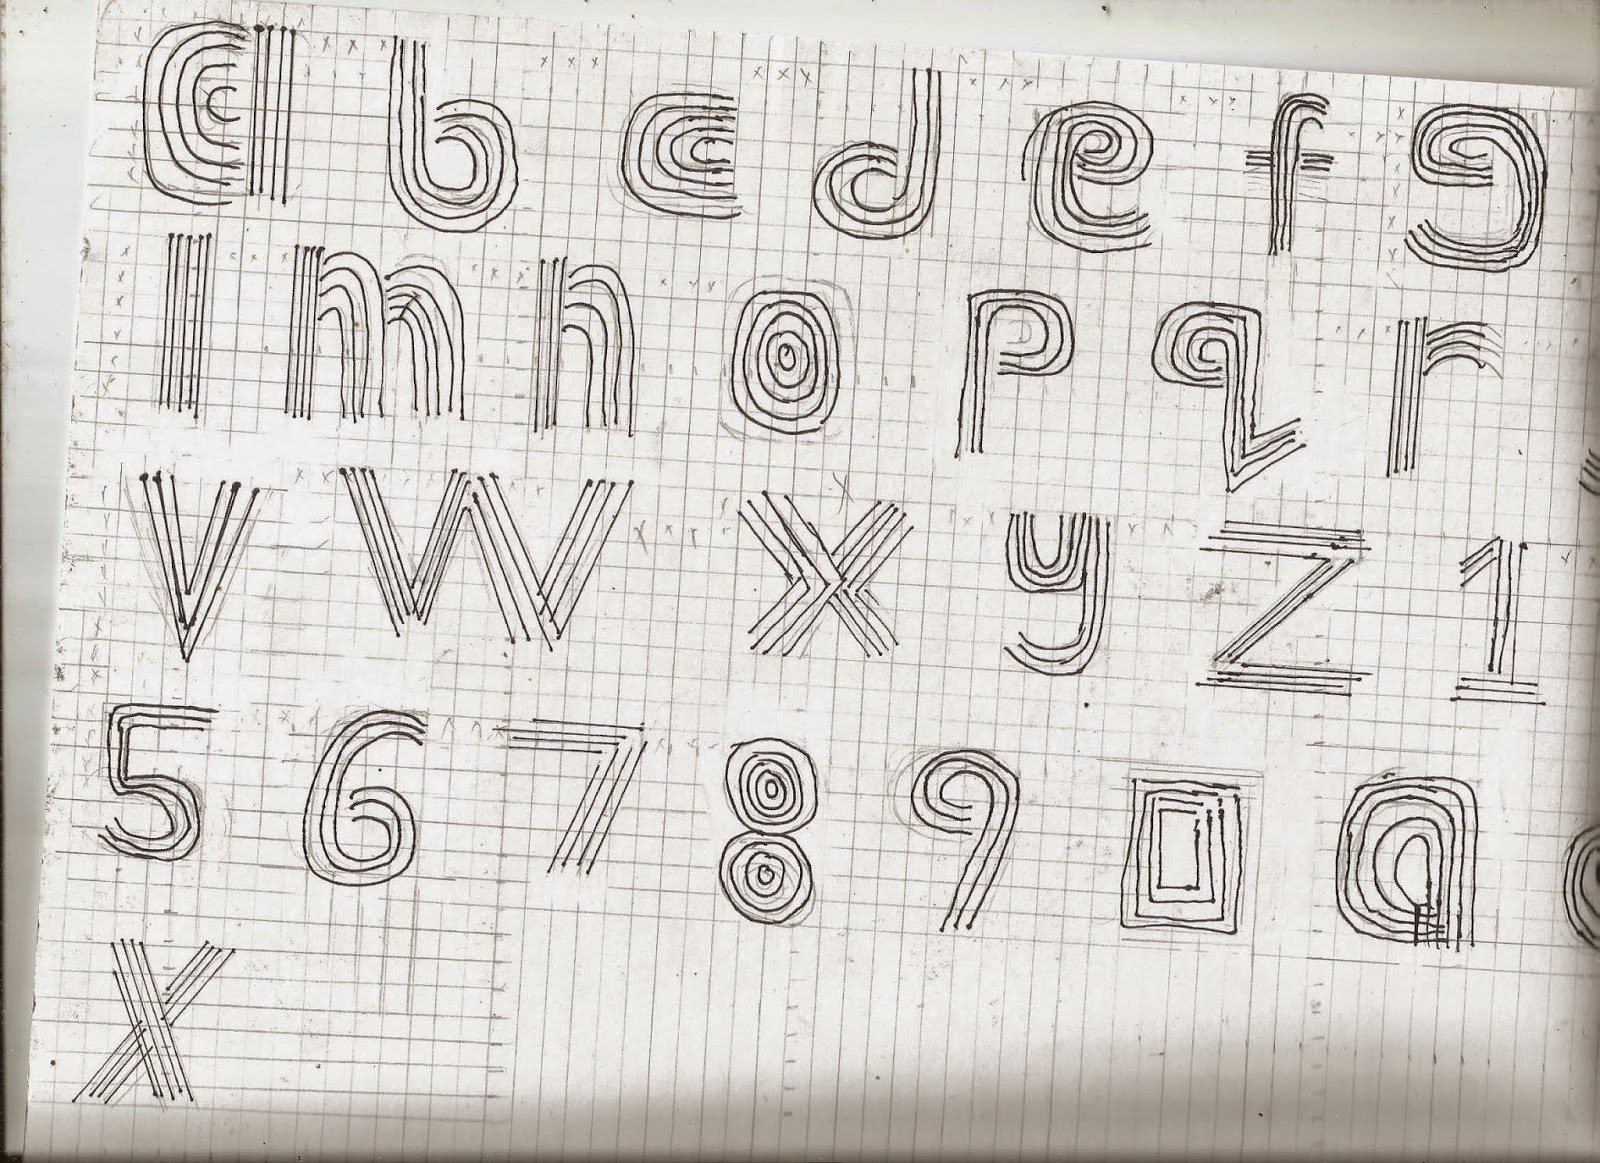 a b c d e f g
l m n o p q r
v w x y z 1
5 6 7 8 9 0 a
x